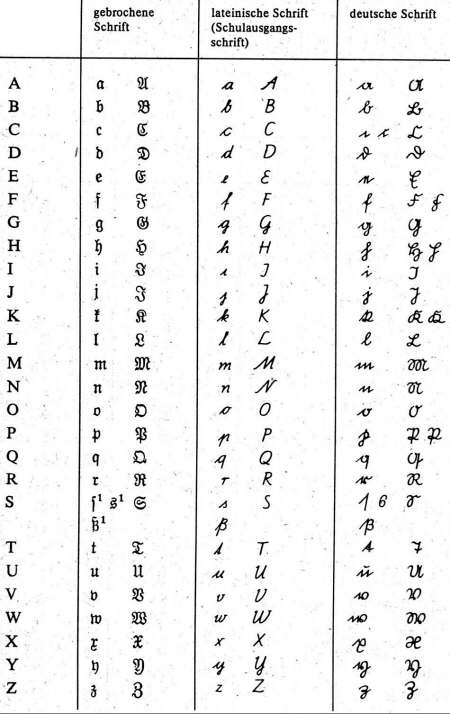 gebrochene Schrift lateinische Schrift (Schulausgangs-schrift) deutsche Schrift
A a A a A a A
B b B b B b B
C c C c C c c C
D d D d D d D
E e E e E e E
F f F f F f F F
G g G g G g G
H h H h H h H H
I i I i I i I
J j J j J j J
K k K k K k K K
L l L l L l L
M m M m M m M
N n N n N n N
O o O o O o O
P p P p P p P P
Q q Q q Q q Q
R r R r R r R
S ſ¹ s¹ S s S ſ s S
ß¹ ß ß
T t T t T t T
U u U u U u U
V v V v V v V
W w W w W w W
X x X x X x X
Y y Y y Y y Y
Z z Z z Z z Z